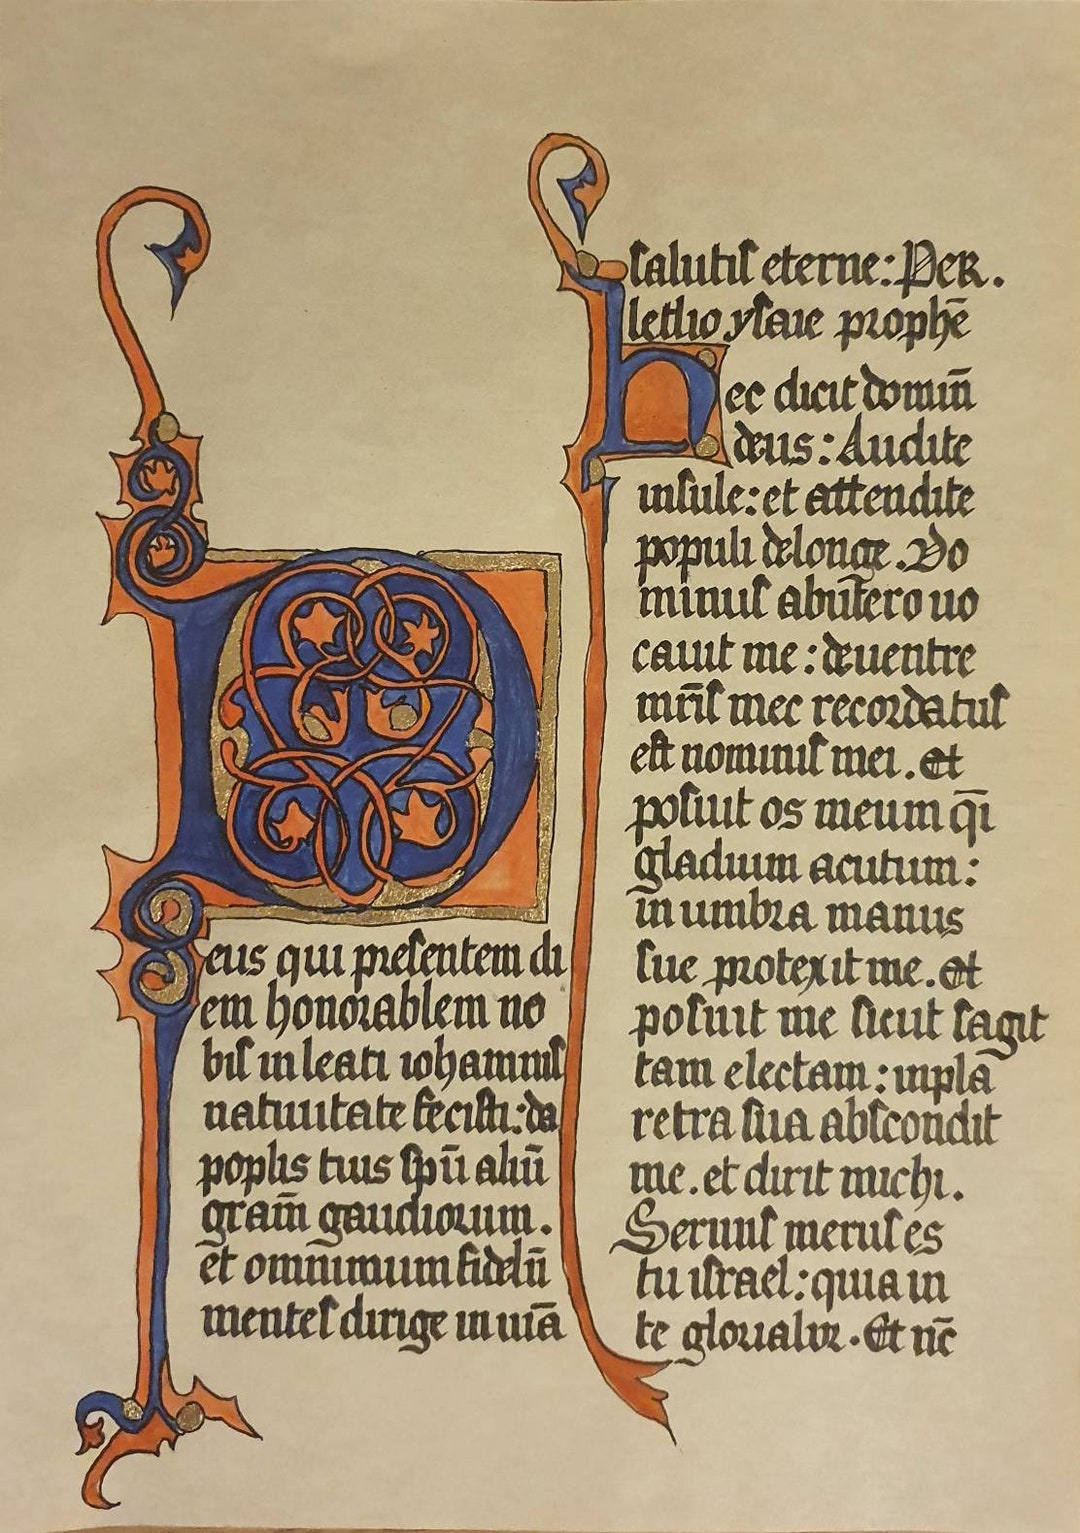 Deus qui preſentem di
em honorablem no
biſ in leati iohamniſ
natiuitate feciſti: da
poplis tuis ſpū aliū
gram̄ gaudiorum.
et omnium fidelū
menteſ dirige in uiā
ſalutiſ eterne: PER.
letlio yſaie prophē
hec dicit domin̄
deus: Audite
inſule: et attendite
populi delonge. Do
minuſ abutero uo
cauit me: deuentre
mr̄iſ mec recordatuſ
eſt nominiſ mei. Et
poſuit os meum q̄i
gladium acutum:
in umbra manus
ſue protexit me. Et
poſuit me ſicut ſagit
tam electam: inpla
retra ſua abſcondit
me. et dirit michi.
Seruuſ meruſ es
tu iſrael: quia in
te glorialor. Et nc̄